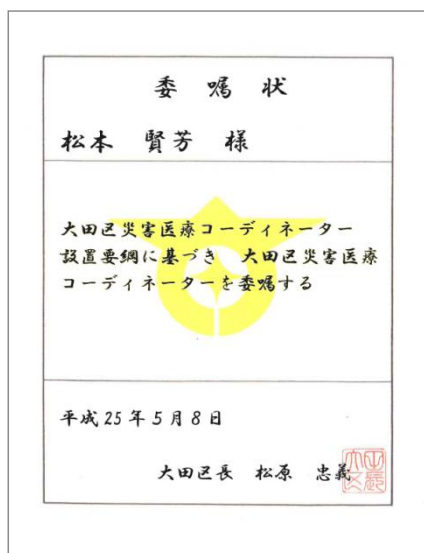 委嘱状
松本 賢芳 様
大田区災害医療コーディネーター
設置要綱に基づき 大田区災害医療
コーディネーターを委嘱する
平成25年5月8日
大田区長 松原 忠義